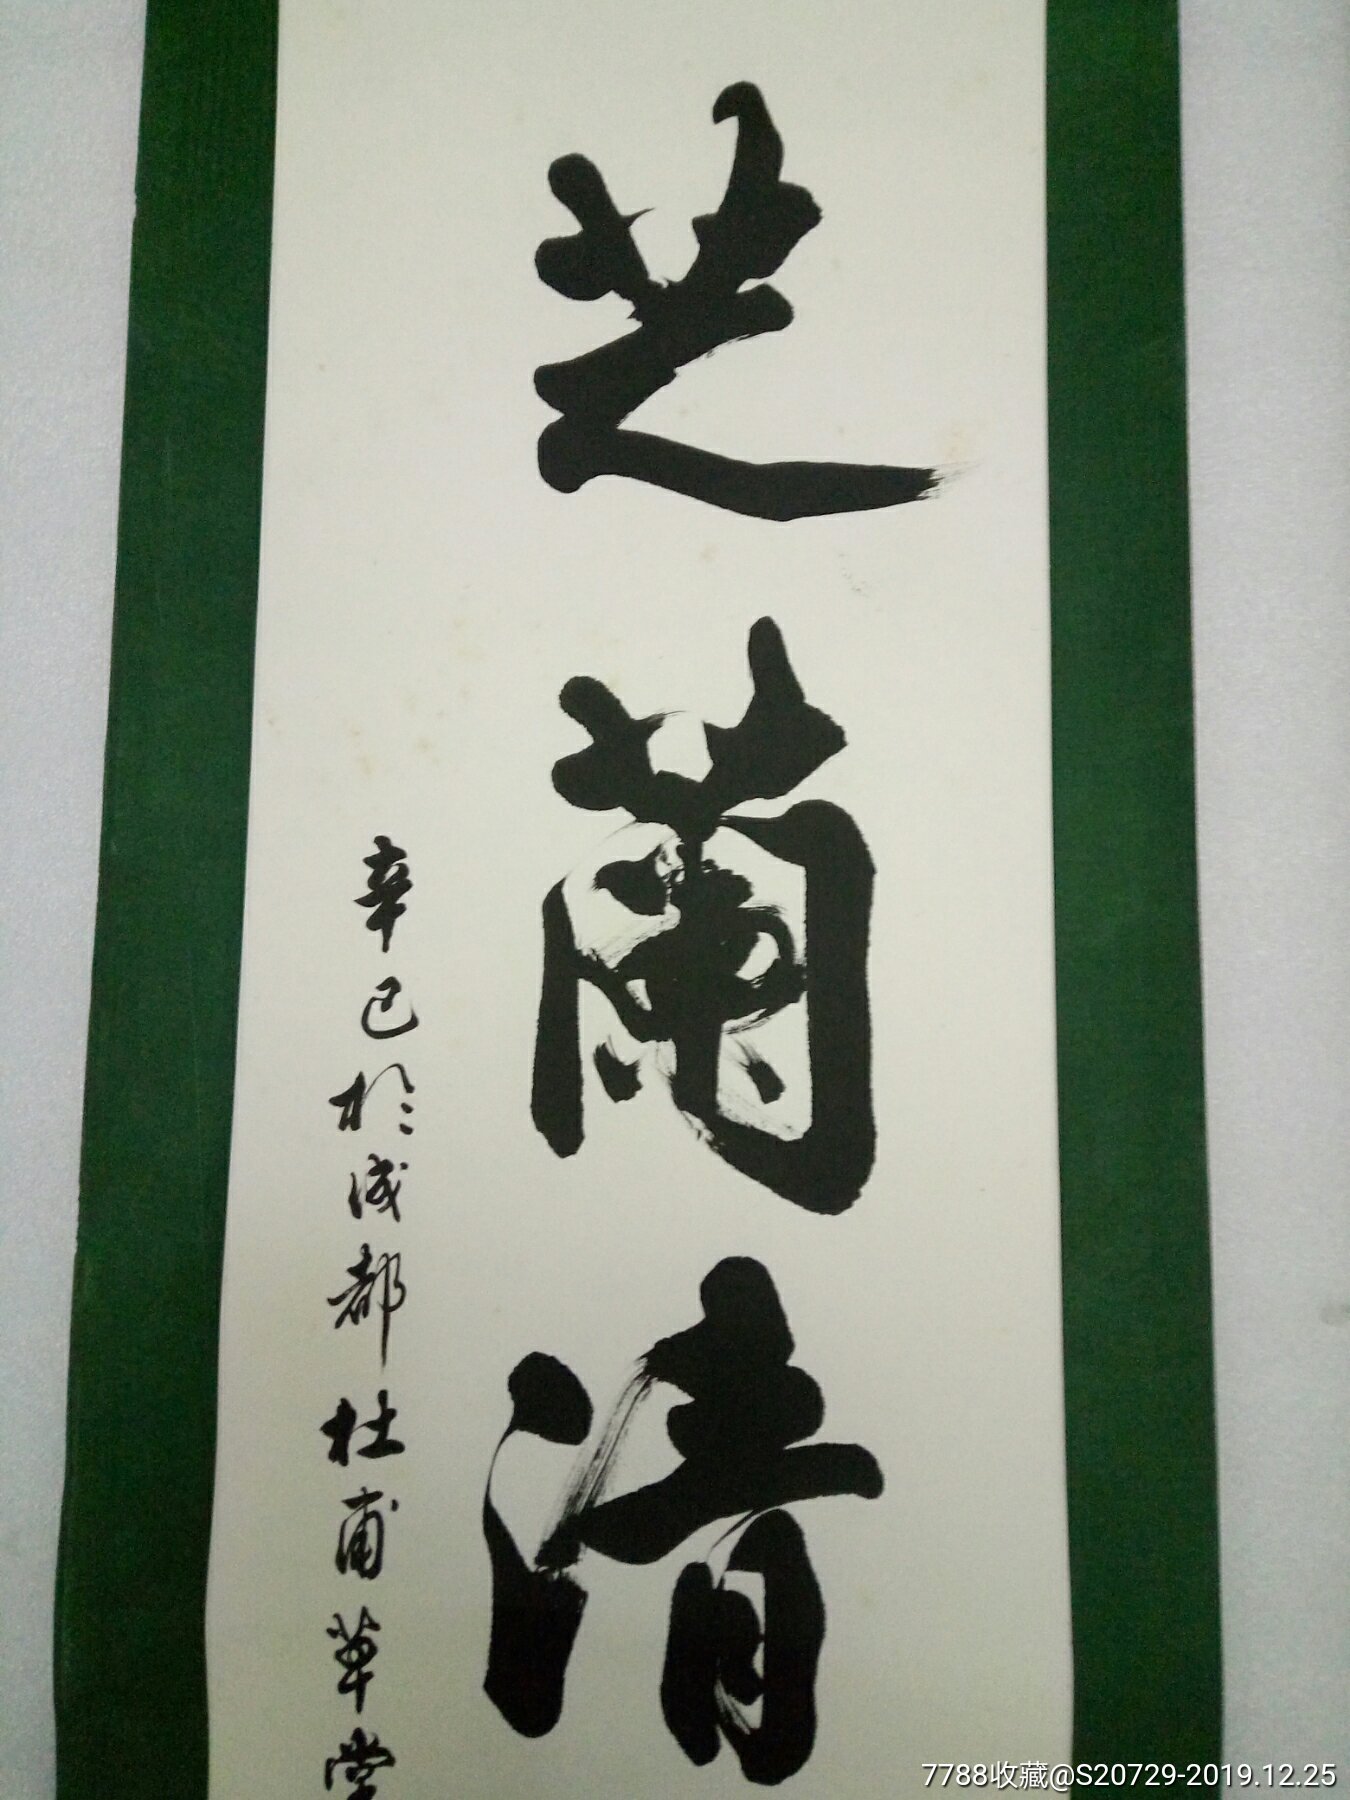 芝蘭清
辛巳於成都杜甫草堂
7788收藏@S20729-2019.12.25